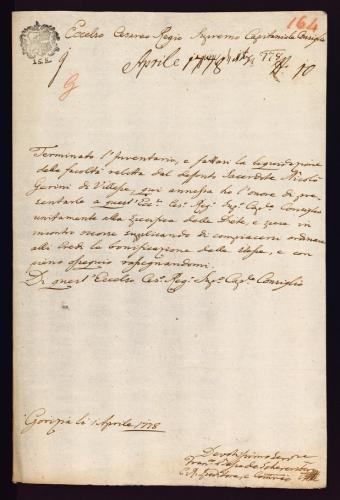 164
Eccelso Cesareo Regio Supremo Capitaniale Consiglio
9
Aprile 1778 N. 10
Terminato l'Inventario, e fattasi la liquidazione
della facoltà relitta dal defunto Sacerdote Nicolò
Gerini di Villesse, qui annessa ho l'onore di pre-
sentarla a quest'Ecc. Ces. Reg. Sup. Cap.le Consiglio
unitamente alla specifica delle Diete, e spese in
incontro occorse supplicando di compiacersi ordinare
alli Eredi la bonificazione delle stesse, e con
pieno ossequio rassegnandomi.
Di quest'Eccelso Ces. Reg. Sup. Cap.le Consiglio
Gorizia li 1 Aprile 1778
Devotissimo Servo
Fran.